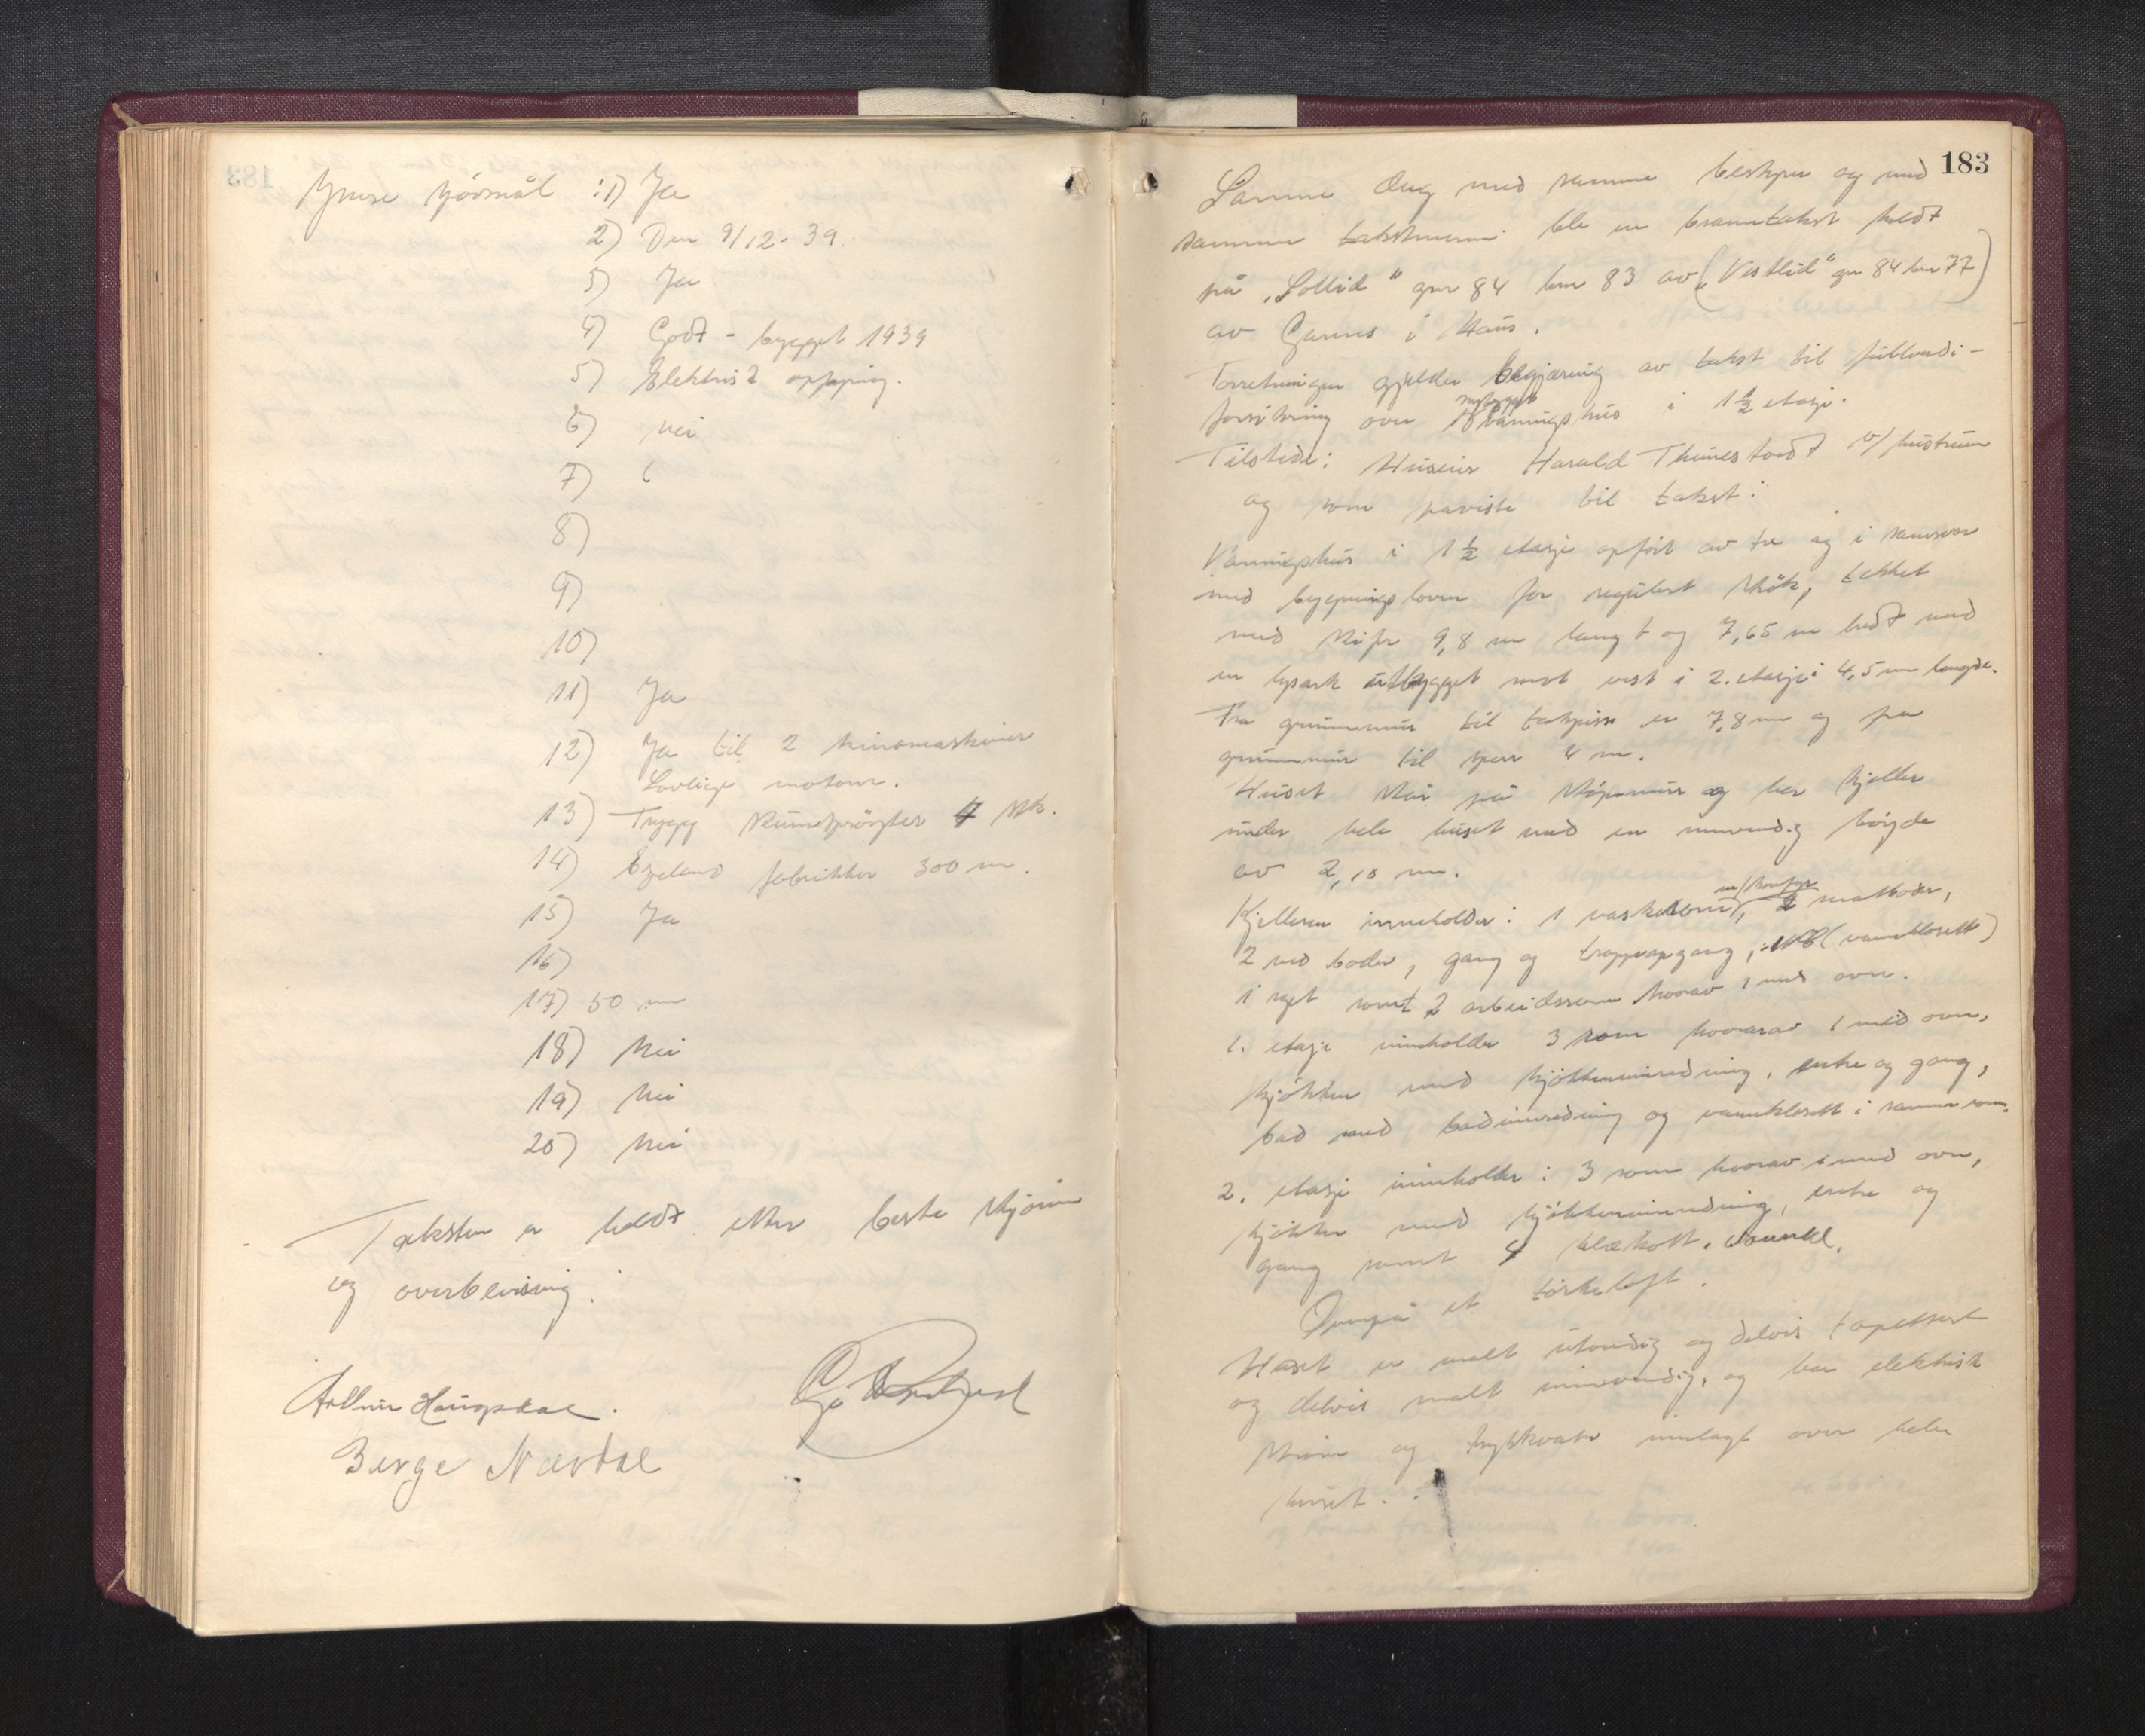 Ymse spörsmål :1) Ja
2) Den 9/12-39.
3) Ja
4) Godt - bygget 1939
5) Elektrisk oppvarming.
6) Nei
7)
8)
9)
10)
11) Ja
12) Ja til 2 kinomaskiner
Lovlige motorer.
13) Trygg skumsprøyter 4 stk.
14) fabrikker 300 m.
15) Ja
16)
17) 50 m
18) Nei
19) Nei
20) Nei
Taksten er holdt etter beste skjönn
og overbevisning.
Arthur Haugsdal.
Berge Nævdal
183
Samme dag med samme bestyrer og med
samme takstmenn ble en branntakst holdt
på „Sollid" gnr 84 bnr 83 av („Vestlid" gnr 84 bnr 77)
av Garnes i Haus.
Forretningen gjelder begjæring av takst til fullverdi-
forsikring over nybygget våningshus i 1½ etasje.
Tilstede: Huseier Harald Thunestvedt v/ hustru
og som påviste til takst:
Våningshus i 1½ etasje opfört av tre og i samsvar
med bygningsloven for regulert strök, tekket
med skifer 9,8 m langt og 7,65 m bredt med
en lysark utbygget mot vest i 2. etasje: 4,5 m lengde.
Fra grunnmur til takspiss er 7,8 m og fra
grunnmur til sperr 4 m.
Huset står på støpemur og har kjeller
under hele huset med en innvendig höyde
av 2,10 m.
Kjelleren inneholder: 1 vaskerum m/komfyr, 2 matboder,
2 ved boder, gang og trappeopgang, WC (vannklosett)
i eget samt 2 arbeidsrom hvorav 1 med ovn.
1. etasje inneholder 3 rom hvorav 1 med ovn,
kjökken med kjökkeninnredning, entre og gang,
bad med badinnredning og vannklosett i samme rom.
2. etasje inneholder: 3 rom hvorav 1 med ovn,
kjökken med kjökkeninnredning, entre og
gang samt 4 klækott, vannkl.
Ovenpå et törkeloft.
Huset er malt utvendig og delvis tapetsert
og delvis malt innvendig, og har elektrisk
ström og trykkvatn innlagt over hele
huset.